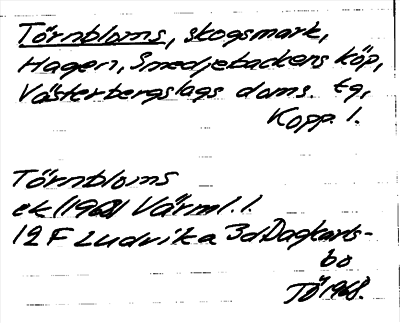 Törnbloms, skogsmark,
Hagen, Smedjebackens köp,
Västerbergslags doms. tg,
Kopp. l.
Törnbloms
ek (1968) Värml. l.
12 F Ludvika 3d Dagkarls-
bo
TÖ 1968.